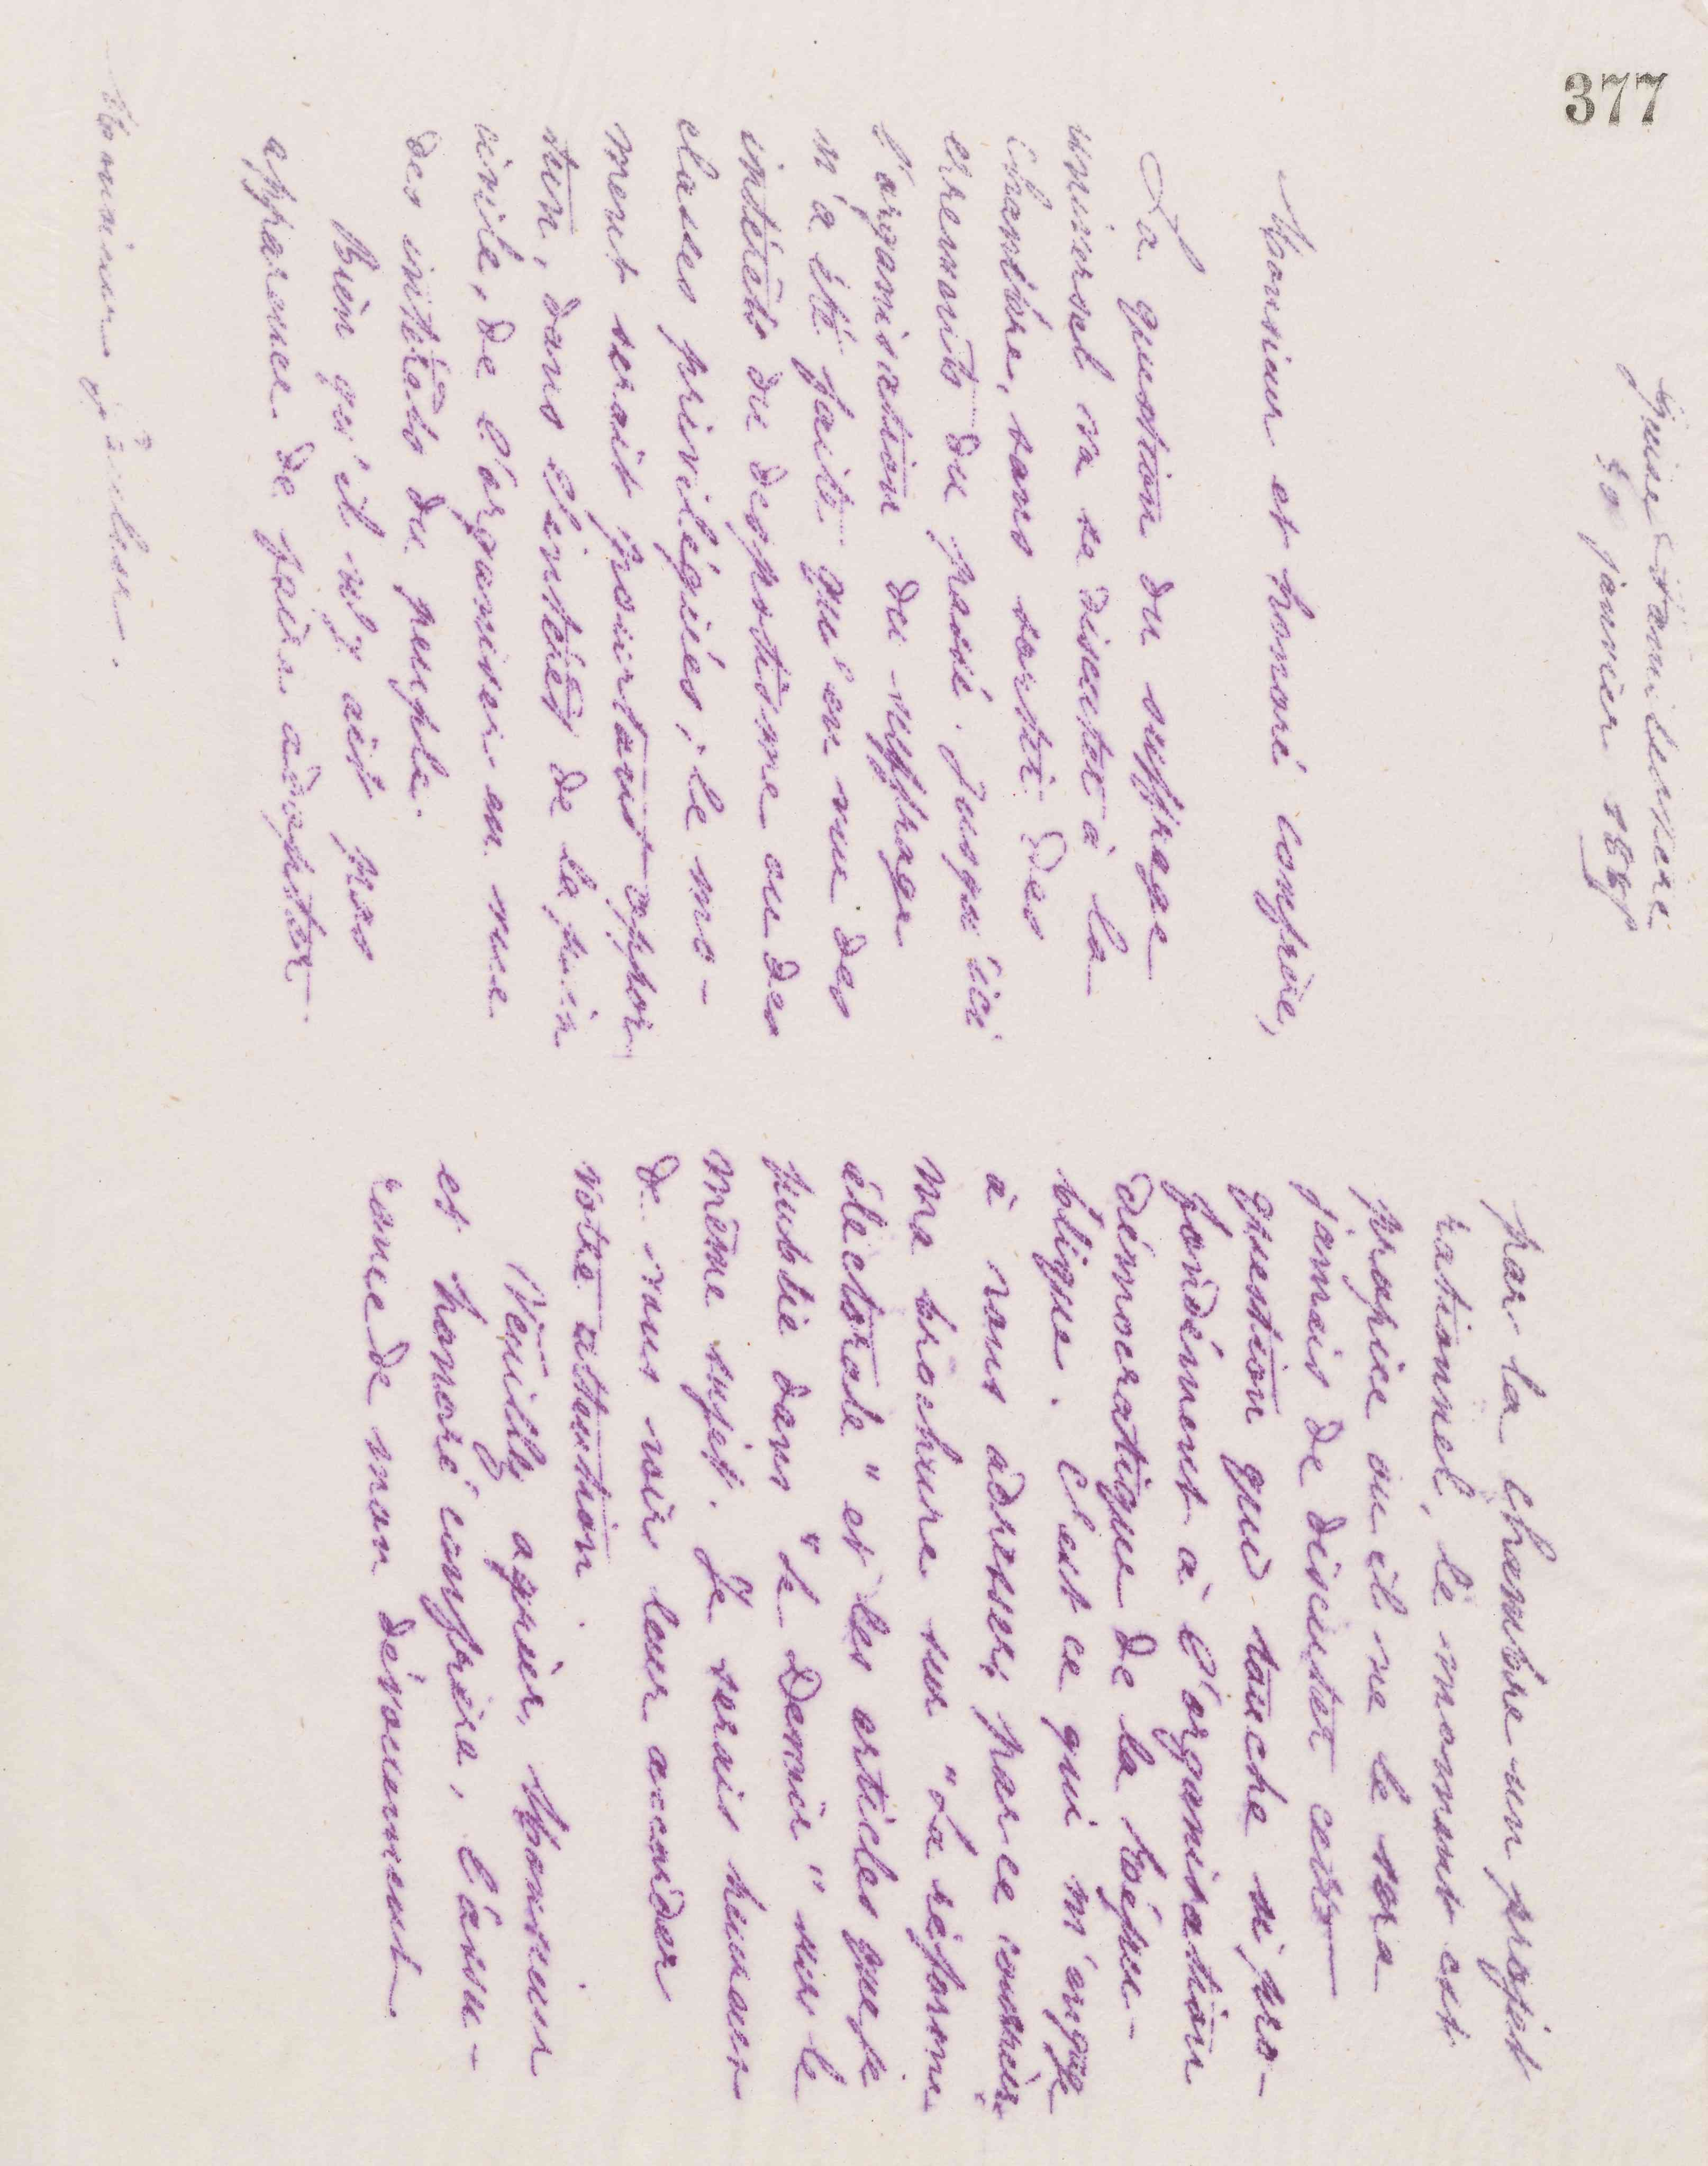 377
Guise Familistère
20 janvier 1885
Monsieur et honoré confrère,
La question du suffrage
universel va se discuter à la
Chambre, sans sortir des
errements du passé. Jusqu'ici
l'organisation du suffrage
n'a été faite qu'en vue des
intérêts du despotisme ou des
classes privilégiées; le mo-
ment serait pourtant oppor
tun, dans l'intérêt de la paix
civile, de l'organiser en vue
des intérêts du peuple.
Bien qu'il n'y ait pas
apparence de faire adopter
Monsieur
par la Chambre un projet
rationnel, le moment est
propice ou il ne le sera
jamais de discuter cette
question qui touche si pro-
fondément à l'organisation
démocratique de la Répu-
blique. C'est ce qui m'engage
à vous adresser, par ce courrier
ma brochure sur "La réforme
électorale" et les articles que je
publie dans "Le Devoir" sur le
même sujet. Je serais heureux
de vous voir leur accorder
votre attention
Veuillez agréer, Monsieur
et honoré confrère, l'assu-
rance de mon dévouement.